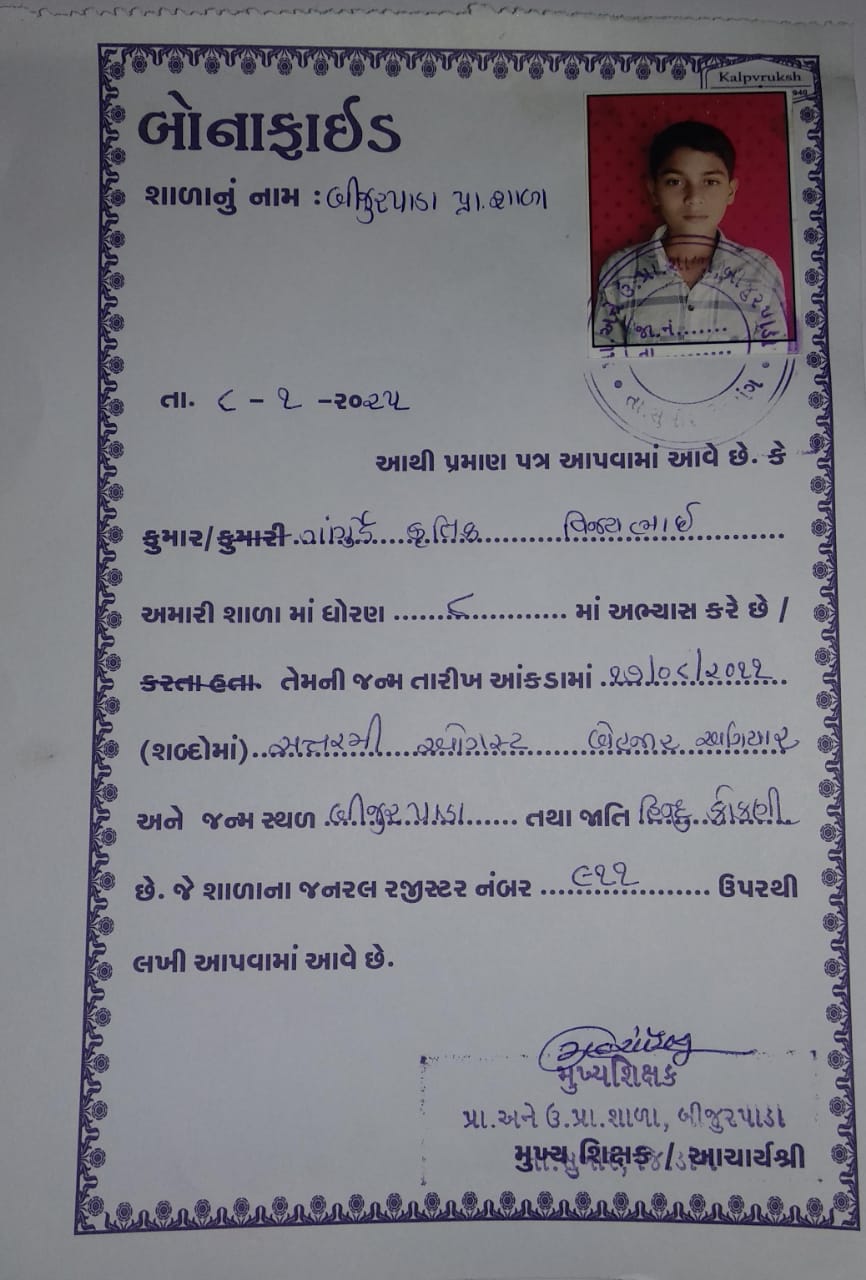 Kalpvruksh
949
બોનાફાઈડ
શાળાનું નામ : બીજુરપાડા પ્રા.શાળા
તા. ૮ - ૧ - ૨૦૨૫
આથી પ્રમાણ પત્ર આપવામાં આવે છે. કે
કુમાર/કુમારી ગાંગુર્ડે કૃતિક વિજયભાઈ
અમારી શાળા માં ધોરણ ......૮............ માં અભ્યાસ કરે છે /
કરતા હતા. તેમની જન્મ તારીખ આંકડામાં ૧૭/૦૮/૨૦૧૧
(શબ્દોમાં) સત્તરમી ઓગસ્ટ બેહજાર અગિયાર
અને જન્મ સ્થળ બીજુરપાડા તથા જાતિ હિન્દુ કોકણી
છે. જે શાળાના જનરલ રજીસ્ટર નંબર ....૯૧૧.......... ઉપરથી
લખી આપવામાં આવે છે.
મુખ્યશિક્ષક
પ્રા.અને ઉ.પ્રા.શાળા, બીજુરપાડા
મુખ્ય શિક્ષક / આચાર્યશ્રી
જા.નં.......
તા..........